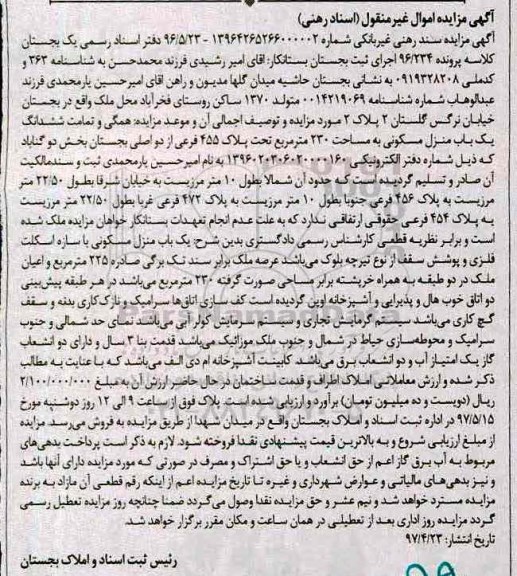 آگهی مزایده اموال غیرمنقول (اسناد رهنی)
آگهی مزایده سند رهنی غیربانکی شماره ۱۳۹۶۴۲۶۵۲۶۶۰۰۰۰۰۲ - ۹۶/۵/۲۳ دفتر اسناد رسمی یک بجستان
کلاسه پرونده ۹۶/۲۳۴ اجرای ثبت بجستان بستانکار: آقای امیر رشیدی فرزند محمدحسن به شناسنامه ۳۶۳ و
کدملی ۰۹۱۹۳۲۸۲۰۸ به نشانی بجستان حاشیه میدان گلها مدیون و راهن آقای امیرحسین یارمحمدی فرزند
عبدالوهاب شماره شناسنامه ۰۰۱۴۲۱۹۰۶۹ متولد ۱۳۷۰ ساکن روستای فخرآباد محل ملک واقع در بجستان
خیابان نرگس گلستان ۲ پلاک ۲ مورد مزایده و توصیف اجمالی آن و موعد مزایده: همگی و تمامت ششدانگ
یک باب منزل مسکونی به مساحت ۲۳۰ مترمربع تحت پلاک ۴۵۵ فرعی از دو اصلی بجستان بخش دو گناباد
که ذیل شماره دفتر الکترونیکی ۱۳۹۶۰۲۰۳۰۶۰۲۰۰۰۰۱۶۰ به نام امیرحسین یارمحمدی ثبت و سندمالکیت
آن صادر و تسلیم گردیده است که حدود آن شمالا بطول ۱۰ متر مرزیست به خیابان شرقا بطول ۲۲/۵۰ متر
مرزیست به پلاک ۴۵۶ فرعی جنوبا بطول ۱۰ متر مرزیست به پلاک ۴۷۲ فرعی غربا بطول ۲۲/۵۰ متر مرزیست
به پلاک ۴۵۴ فرعی حقوقی ارتفاقی ندارد که به علت عدم انجام تعهدات بستانکار خواهان مزایده ملک شده
است و برابر نظریه قطعی کارشناس رسمی دادگستری بدین شرح: یک باب منزل مسکونی با سازه اسکلت
فلزی و پوشش سقف از نوع تیرچه بلوک می‌باشد عرصه ملک برابر سند تک برگی صادره ۲۲۵ مترمربع و اعیان
ملک در دو طبقه به همراه خرپشته برابر مساحی صورت گرفته ۲۳۰ مترمربع می‌باشد در هر طبقه پیش‌بینی
دو اتاق خوب هال و پذیرایی و آشپزخانه اوپن گردیده است کف سازی اتاق‌ها سرامیک و نازک‌کاری بدنه و سقف
گچ کاری می‌باشد سیستم گرمایش بخاری و سیستم سرمایش کولر آبی می‌باشد نمای حد شمالی و جنوب
سرامیک و محوطه‌سازی حیاط در شمال و جنوب ملک موزائیک می‌باشد قدمت بنا ۳ سال و دارای دو انشعاب
گاز یک امتیاز آب و دو انشعاب برق می‌باشد. کابینت آشپزخانه ام دی الف می‌باشد که با عنایت به مطالب
ذکر شده و ارزش معاملاتی املاک اطراف و قدمت ساختمان در حال حاضر ارزش آن به مبلغ ۲/۱۰۰/۰۰۰/۰۰۰
ریال (دویست و ده میلیون تومان) برآورد و ارزیابی شده است. پلاک فوق از ساعت ۹ الی ۱۲ روز دوشنبه مورخ
۹۷/۵/۱۵ در اداره ثبت اسناد و املاک بجستان واقع در میدان شهدا از طریق مزایده به فروش می‌رسد. مزایده
از مبلغ ارزیابی شروع و به بالاترین قیمت پیشنهادی نقدا فروخته شود. لازم به ذکر است پرداخت بدهی‌های
مربوط به آب برق گاز اعم از حق انشعاب و یا حق اشتراک و مصرف در صورتی که مورد مزایده دارای آنها باشد
و نیز بدهی‌های مالیاتی و عوارض شهرداری و غیره تا تاریخ مزایده اعم از اینکه رقم قطعی آن مازاد به برنده
مزایده مسترد خواهد شد و نیم عشر و حق مزایده نقدا وصول می‌گردد ضمنا چنانچه روز مزایده تعطیل رسمی
گردد مزایده روز اداری بعد از تعطیلی در همان ساعت و مکان مقرر برگزار خواهد شد.
تاریخ انتشار: ۹۷/۴/۲۳
رئیس ثبت اسناد و املاک بجستان